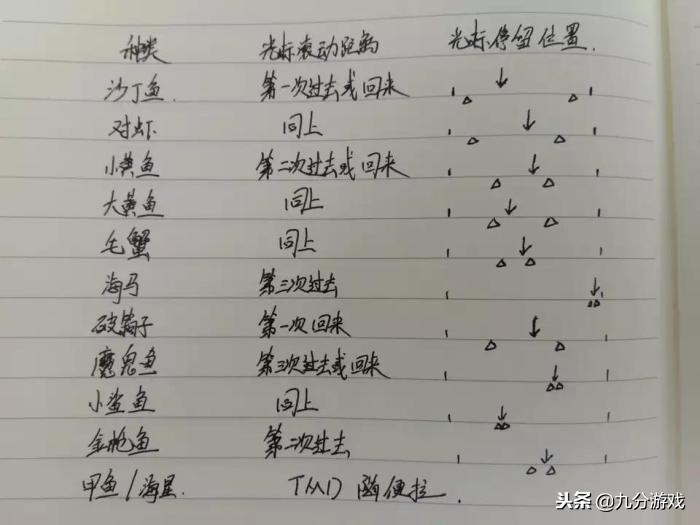 种类 光标滚动距离 光标停留位置.
沙丁鱼. 第一次过去或回来
对虾 同上
小黄鱼 第二次过去或回来
大黄鱼 同上
毛蟹 同上
海马 第三次过去
破鞋子 第一次回来
魔鬼鱼 第三次过去或回来
小鲨鱼 同上
金枪鱼 第二次过去
甲鱼/海星. TMD 随便拉.
头条@九分游戏